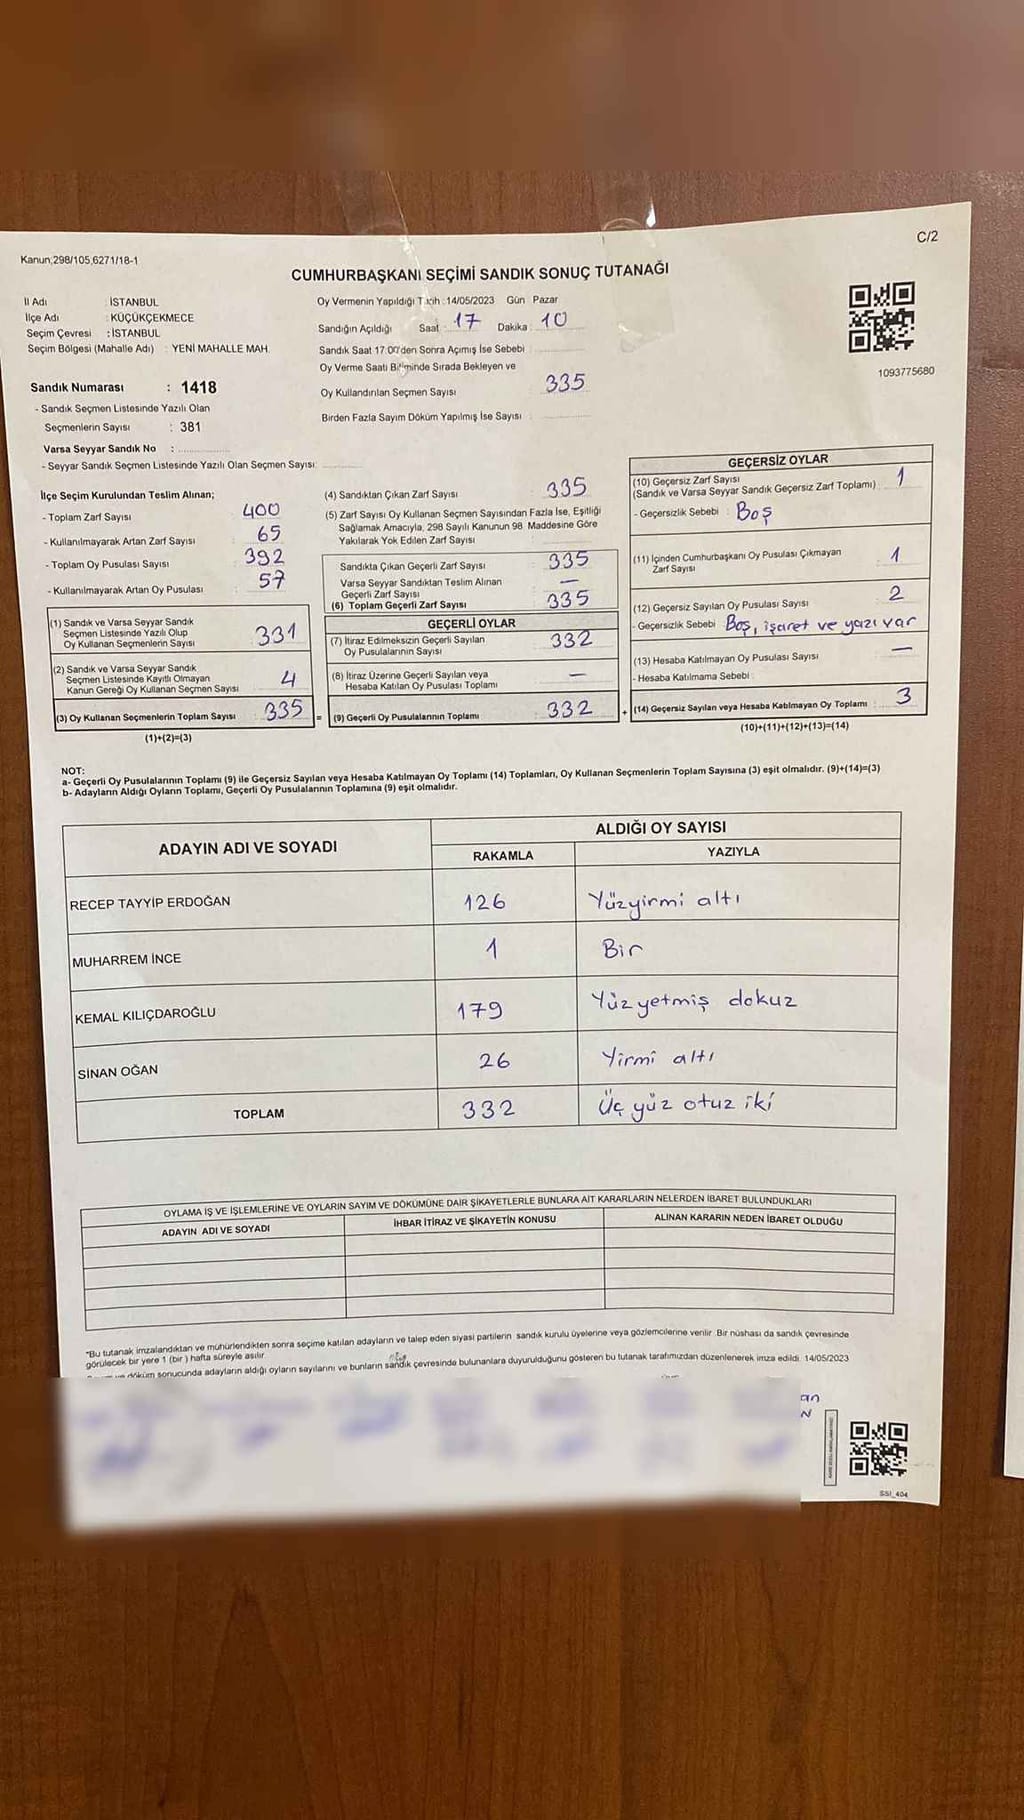 C/2
Kanun;298/105,6271/18-1
CUMHURBAŞKANI SEÇİMİ SANDIK SONUÇ TUTANAĞI
İl Adı : İSTANBUL
İlçe Adı : KÜÇÜKÇEKMECE
Seçim Çevresi : İSTANBUL
Seçim Bölgesi (Mahalle Adı) : YENİ MAHALLE MAH.
Sandık Numarası : 1418
- Sandık Seçmen Listesinde Yazılı Olan
Seçmenlerin Sayısı : 381
Varsa Seyyar Sandık No :
- Seyyar Sandık Seçmen Listesinde Yazılı Olan Seçmen Sayısı:
Oy Vermenin Yapıldığı Tarih : 14/05/2023 Gün Pazar
Sandığın Açıldığı Saat : 17 Dakika : 10
Sandık Saat 17:00'den Sonra Açımış İse Sebebi
Oy Verme Saati Bitiminde Sırada Bekleyen ve
Oy Kullandırılan Seçmen Sayısı 335
Birden Fazla Sayım Döküm Yapılmış İse Sayısı
1093775680
İlçe Seçim Kurulundan Teslim Alınan;
- Toplam Zarf Sayısı 400
- Kullanılmayarak Artan Zarf Sayısı 65
- Toplam Oy Pusulası Sayısı 392
- Kullanılmayarak Artan Oy Pusulası 57
(1) Sandık ve Varsa Seyyar Sandık
Seçmen Listesinde Yazılı Olup
Oy Kullanan Seçmenlerin Sayısı 331
(2) Sandık ve Varsa Seyyar Sandık
Seçmen Listesinde Kayıtlı Olmayan
Kanun Gereği Oy Kullanan Seçmen Sayısı 4
(3) Oy Kullanan Seçmenlerin Toplam Sayısı 335 =
(1)+(2)=(3)
(4) Sandıktan Çıkan Zarf Sayısı 335
(5) Zarf Sayısı Oy Kullanan Seçmen Sayısından Fazla İse, Eşitliği
Sağlamak Amacıyla, 298 Sayılı Kanunun 98. Maddesine Göre
Yakılarak Yok Edilen Zarf Sayısı
Sandıkta Çıkan Geçerli Zarf Sayısı : 335
Varsa Seyyar Sandıktan Teslim Alınan
Geçerli Zarf Sayısı : —
(6) Toplam Geçerli Zarf Sayısı : 335
GEÇERLİ OYLAR
(7) İtiraz Edilmeksizin Geçerli Sayılan
Oy Pusulalarının Sayısı 332
(8) İtiraz Üzerine Geçerli Sayılan veya
Hesaba Katılan Oy Pusulası Toplamı —
(9) Geçerli Oy Pusulalarının Toplamı 332 +
GEÇERSİZ OYLAR
(10) Geçersiz Zarf Sayısı
(Sandık ve Varsa Seyyar Sandık Geçersiz Zarf Toplamı) : 1
- Geçersizlik Sebebi : Boş
(11) İçinden Cumhurbaşkanı Oy Pusulası Çıkmayan
Zarf Sayısı 1
(12) Geçersiz Sayılan Oy Pusulası Sayısı 2
- Geçersizlik Sebebi : Boş, işaret ve yazı var
(13) Hesaba Katılmayan Oy Pusulası Sayısı —
- Hesaba Katılmama Sebebi :
(14) Geçersiz Sayılan veya Hesaba Katılmayan Oy Toplamı : 3
(10)+(11)+(12)+(13)=(14)
NOT:
a- Geçerli Oy Pusulalarının Toplamı (9) ile Geçersiz Sayılan veya Hesaba Katılmayan Oy Toplamı (14) Toplamları, Oy Kullanan Seçmenlerin Toplam Sayısına (3) eşit olmalıdır. (9)+(14)=(3)
b- Adayların Aldığı Oyların Toplamı, Geçerli Oy Pusulalarının Toplamına (9) eşit olmalıdır.
ADAYIN ADI VE SOYADI
ALDIĞI OY SAYISI
RAKAMLA YAZIYLA
RECEP TAYYİP ERDOĞAN 126 Yüzyirmi altı
MUHARREM İNCE 1 Bir
KEMAL KILIÇDAROĞLU 179 Yüz yetmiş dokuz
SİNAN OĞAN 26 Yirmi altı
TOPLAM 332 Üç yüz otuz iki
OYLAMA İŞ VE İŞLEMLERİNE VE OYLARIN SAYIM VE DÖKÜMÜNE DAİR ŞİKAYETLERLE BUNLARA AİT KARARLARIN NELERDEN İBARET BULUNDUKLARI
ADAYIN ADI VE SOYADI İHBAR İTİRAZ VE ŞİKAYETİN KONUSU ALINAN KARARIN NEDEN İBARET OLDUĞU
"Bu tutanak imzalandıktan ve mühürlendikten sonra seçime katılan adayların ve talep eden siyasi partilerin sandık kurulu üyelerine veya gözlemcilerine verilir. Bir nüshası da sandık çevresinde
görülecek bir yere 1 (bir) hafta süreyle asılır.
döküm sonucunda adayların aldığı oyların sayılarını ve bunların sandık çevresinde bulunanlara duyurulduğunu gösteren bu tutanak tarafımızdan düzenlenerek imza edildi. 14/05/2023
an
N
SSI_404